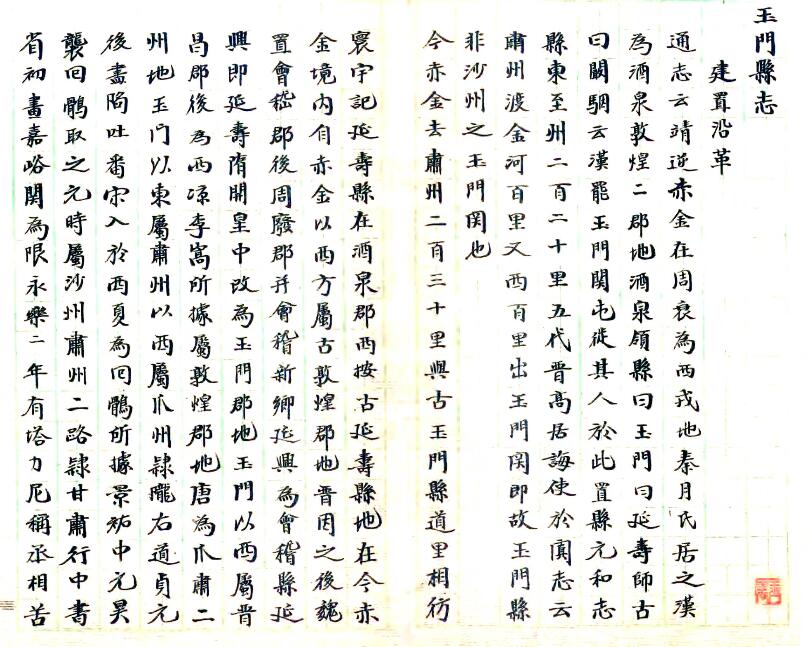 玉門縣志
建置沿革
通志云靖逆赤金在周衰為西戎地秦月氏居之漢
為酒泉敦煌二郡地酒泉領縣曰玉門曰延壽師古
曰闞駰云漢罷玉門關屯徙其人於此置縣元和志
縣東至州二百二十里五代晋高居誨使於闐志云
肅州渡金河百里又西百里出玉門関即故玉門縣
非沙州之玉門関也
今赤金去肅州二百三十里與古玉門縣道里相彷
寰宇記延壽縣在酒泉郡西按古延壽縣地在今赤
金境内自赤金以西方屬古敦煌郡地晋因之後魏
置會稽郡後周廢郡并會稽新鄉延興為會稽縣延
興即延壽隋開皇中改為玉門郡地玉門以西屬晋
昌郡後為西凉李暠所據屬敦煌郡地唐為瓜肅二
州地玉門以東屬肅州以西屬瓜州隷隴右道貞元
後盡陷吐番宋入於西夏為回鶻所據景祐中元昊
襲回鶻取之元時屬沙州肅州二路隷甘肅行中書
省初畫嘉峪関為限永樂二年有塔力尼稱丞相苦